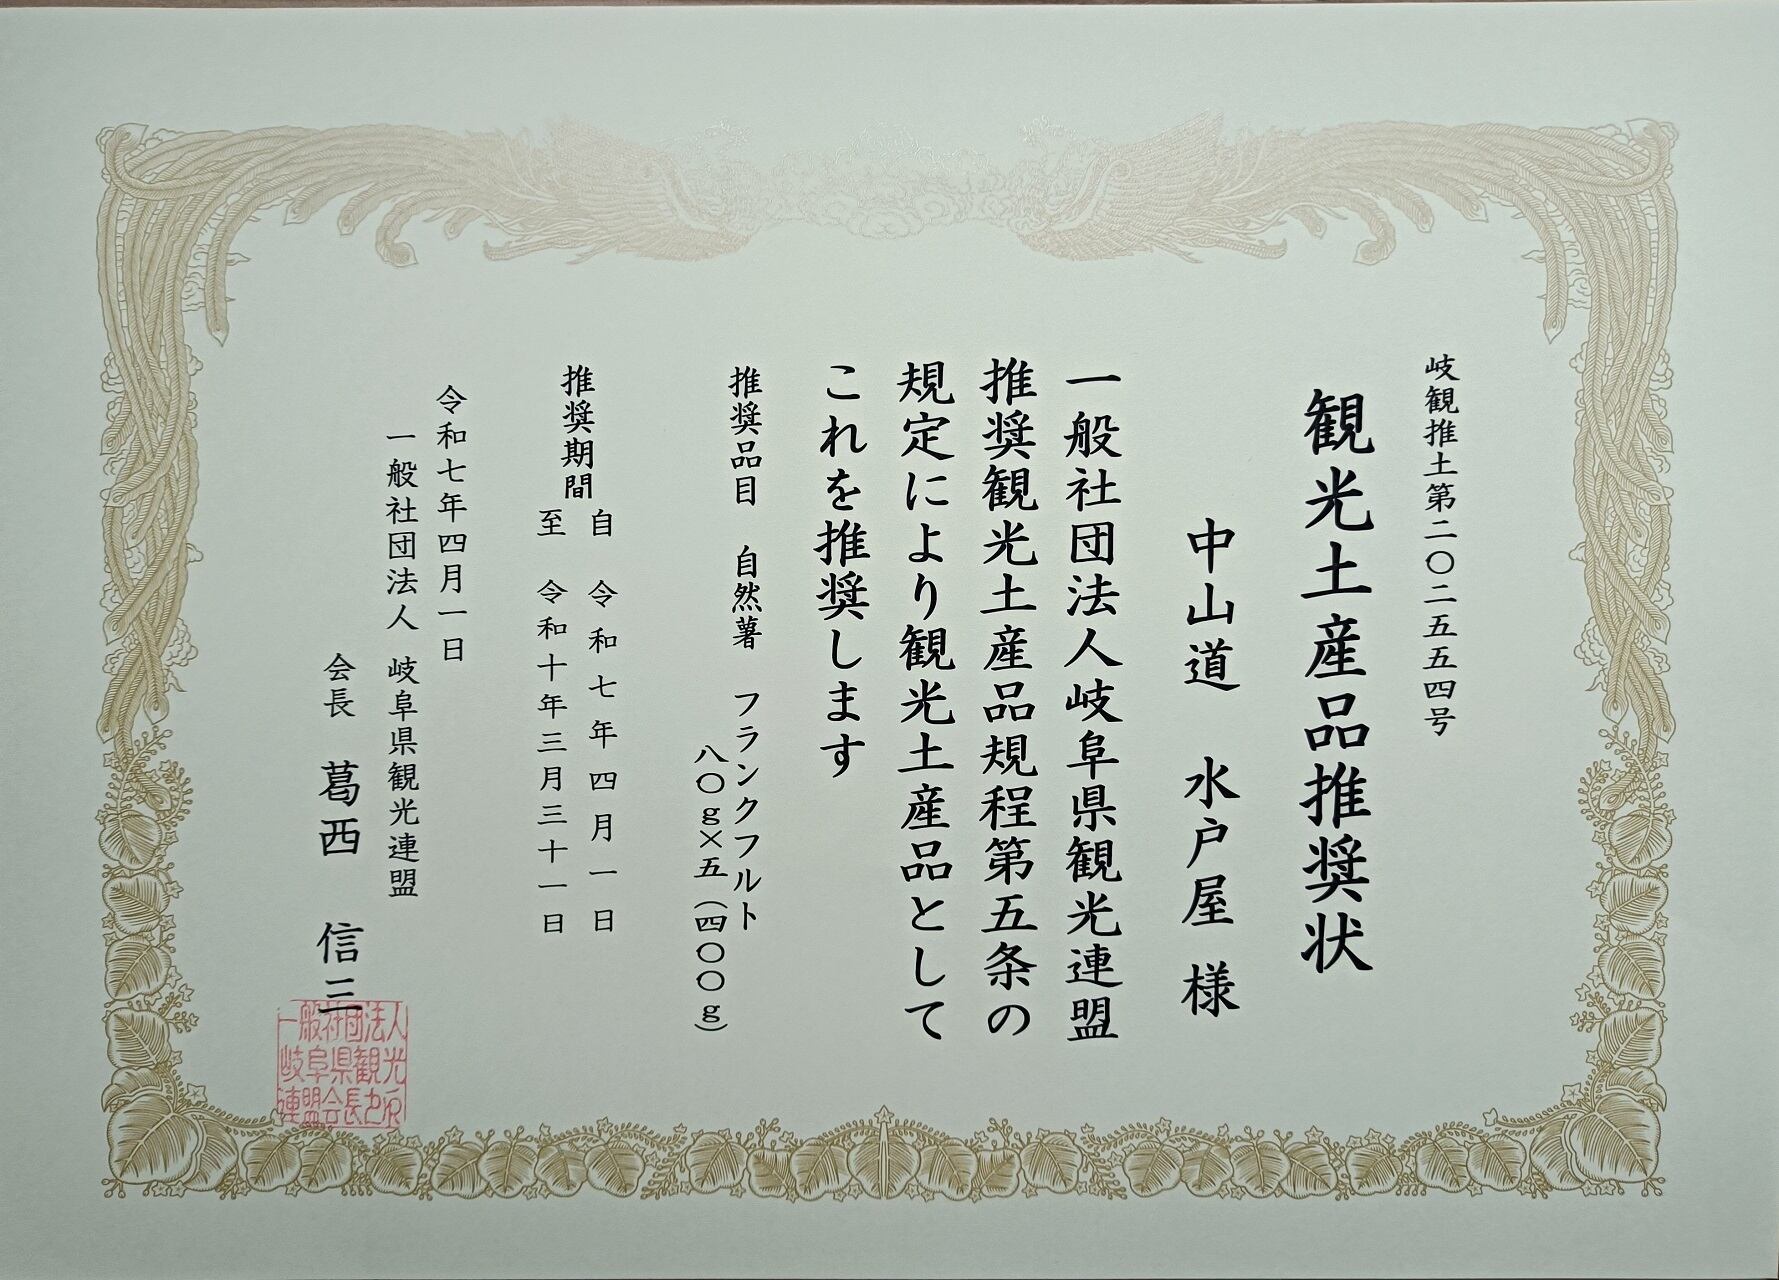 岐観推土第二〇二五五四号
観光土産品推奨状
中山道　水戸屋　様
一般社団法人岐阜県観光連盟
推奨観光土産品規程第五条の
規定により観光土産品として
これを推奨します
推奨品目　自然薯　フランクフルト
八〇g×五（四〇〇g）
推奨期間
自　令和七年四月一日
至　令和十年三月三十一日
令和七年四月一日
一般社団法人　岐阜県観光連盟
会長　葛西　信三
一般社団法人
岐阜県観光
連盟会長之印